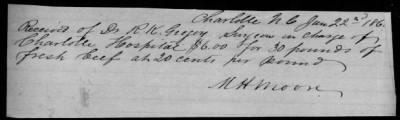 Charlotte N.C Jan 22nd 186
Received of Dr R.K. Gregory Surgeon in Charge of
Charlotte Hospital $6.00 for 30 pounds of
fresh beef at 20 cents per pound
M H Moore